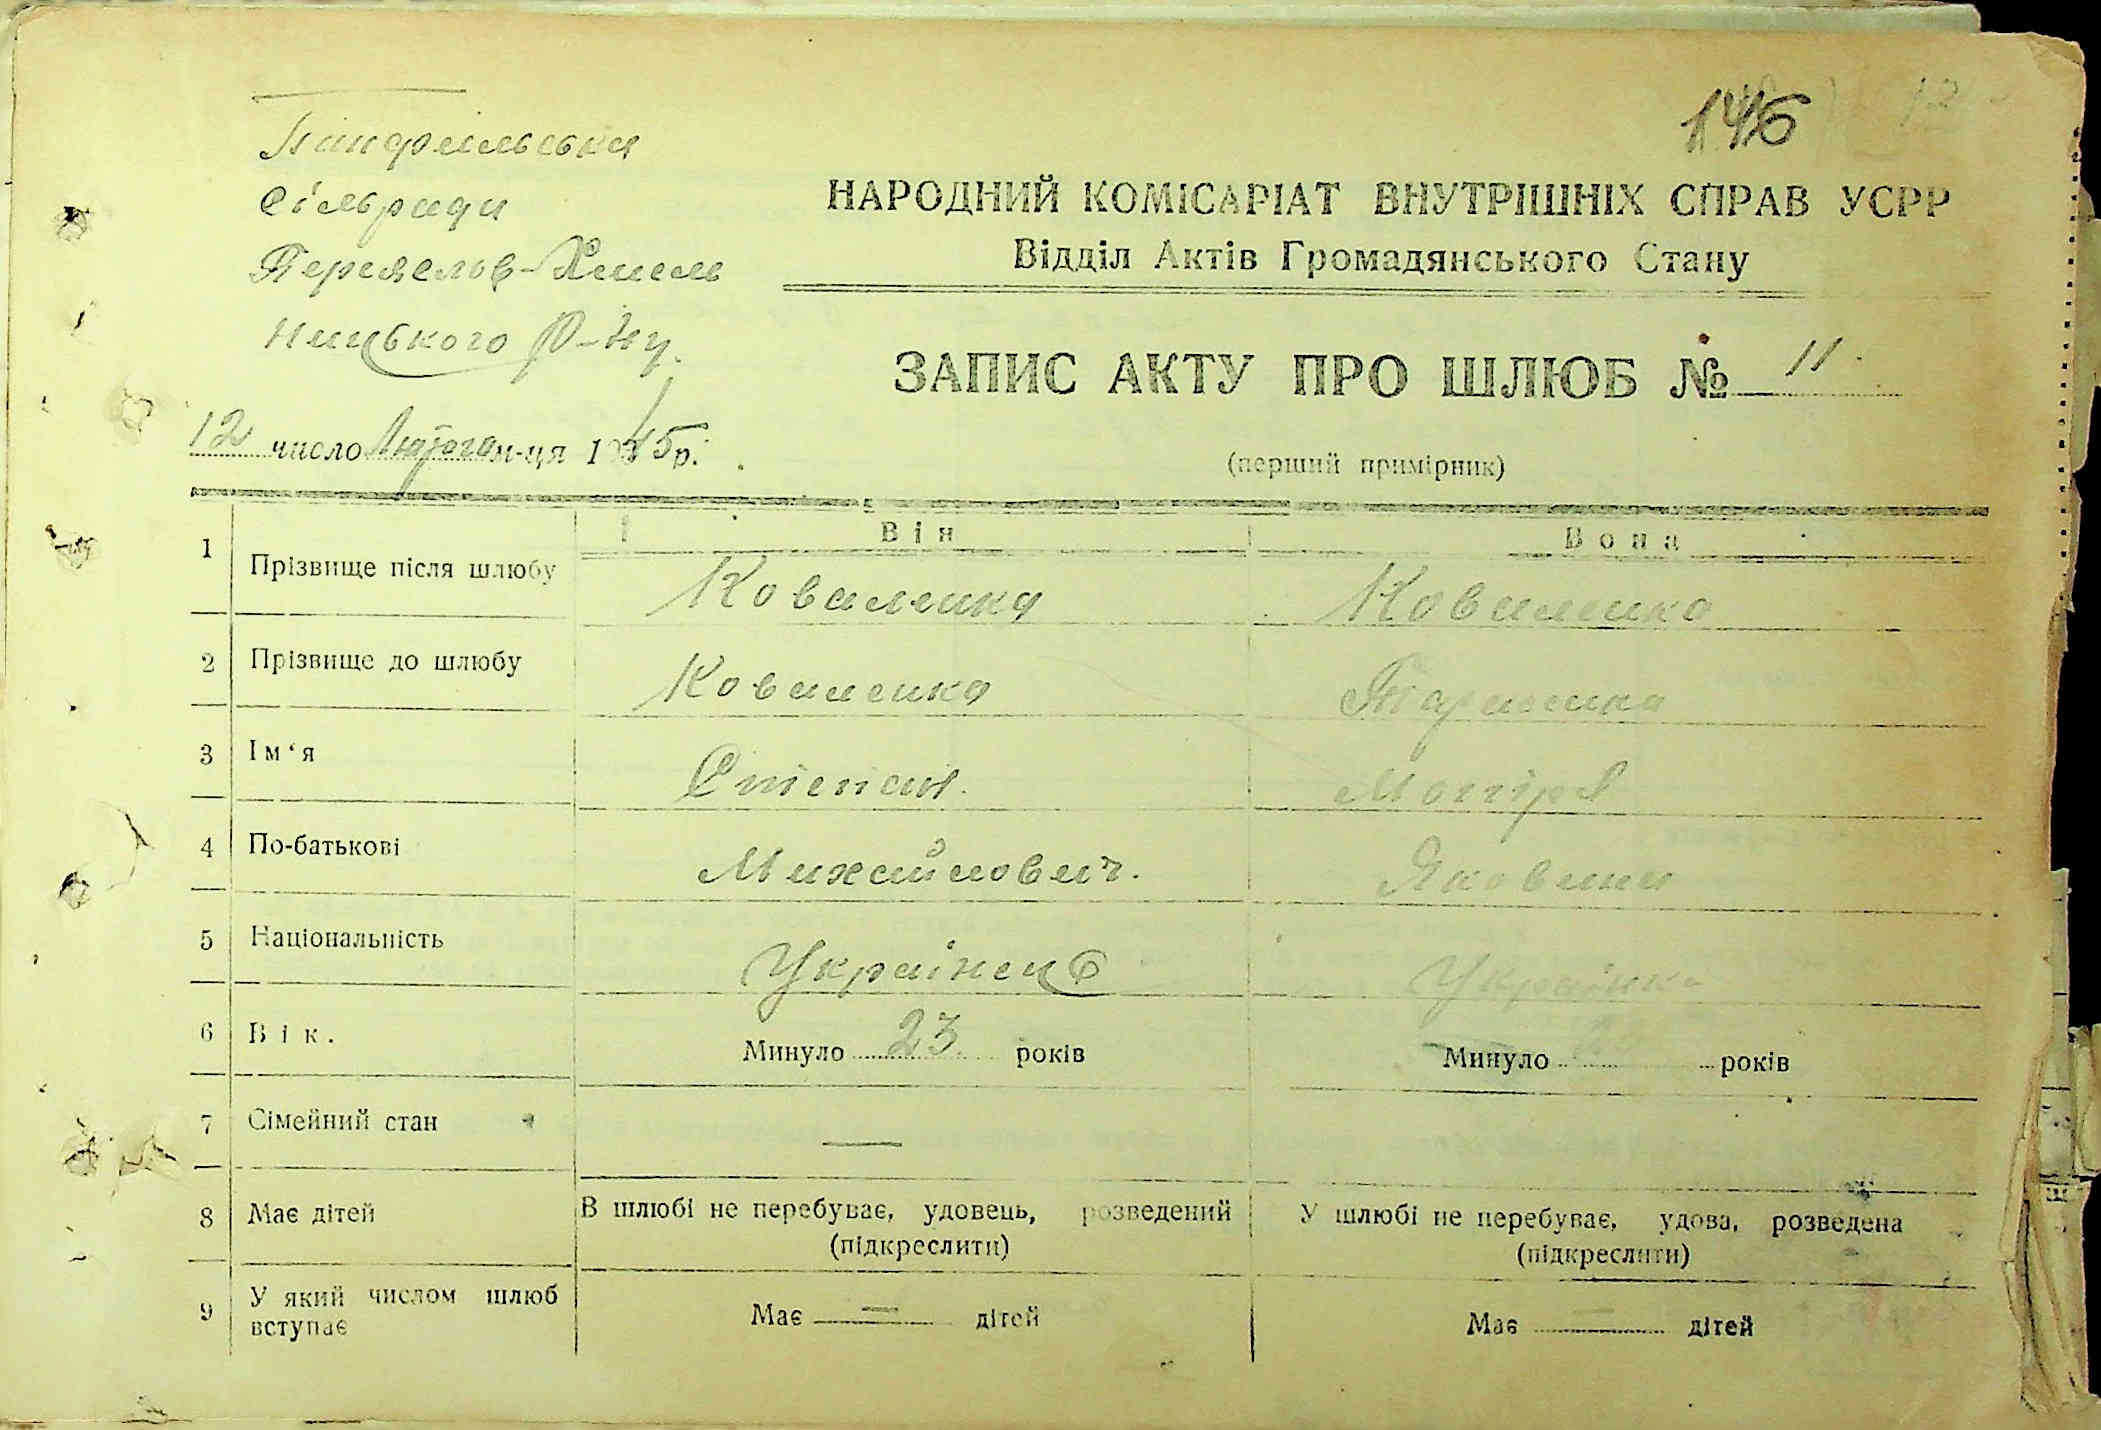 146
12
Панфильська
сільради
Переяслов-Хмель
ницького Р-ну.
НАРОДНИЙ КОМІСАРІАТ ВНУТРІШНІХ СПРАВ УСРР
Відділ Актів Громадянського Стану
ЗАПИС АКТУ ПРО ШЛЮБ № 11
12 число Лютого м-ця 1945р.
(перший примірник)
Він Вона
1 Прізвище після шлюбу Коваленко Коваленко
2 Прізвище до шлюбу Коваленко
3 Ім‘я Степан. Мотря
4 По-батькові Михайлович. Яковична
5 Національність Українець Українка
6 Вік. Минуло 23 років Минуло років
7 Сімейний стан —
8 Має дітей В шлюбі не перебуває, удовець, розведений У шлюбі не перебуває, удова, розведена
(підкреслити) (підкреслити)
9 У який числом шлюб
вступає Має — дітей Має — дітей